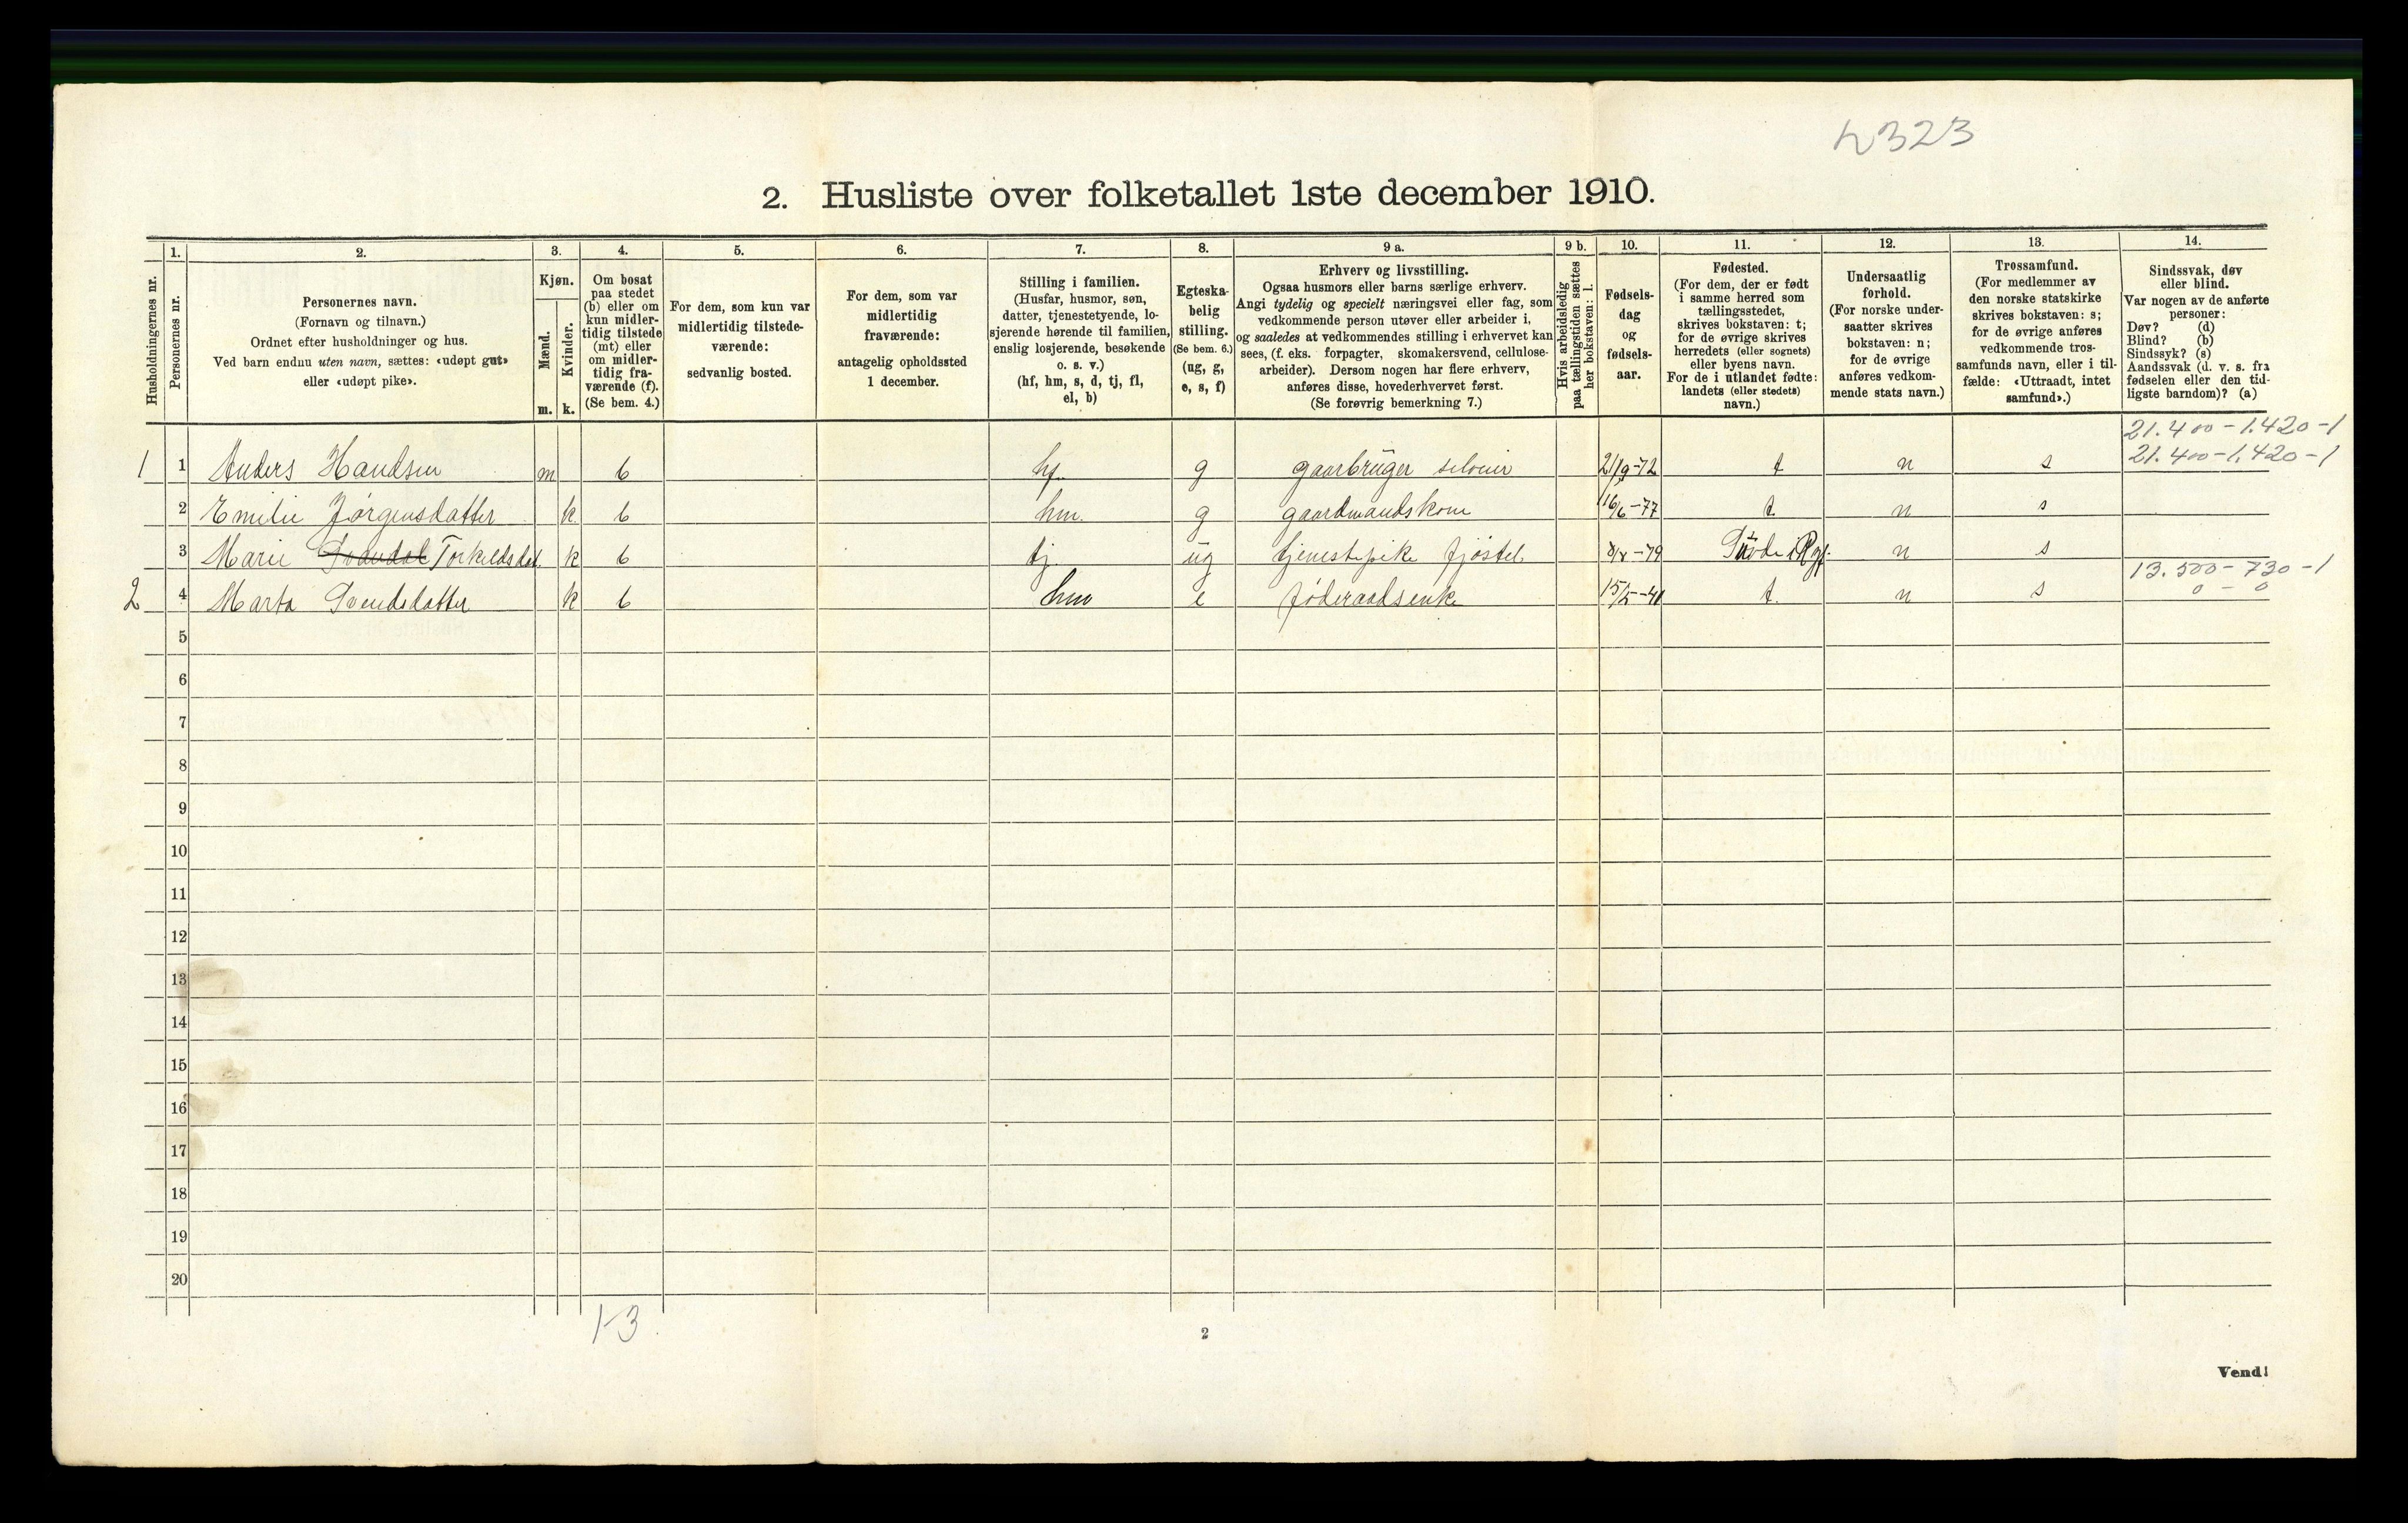 2323
2. Husliste over folketallet 1ste december 1910.
Husholdningernes nr.
1.
Personernes nr.
2.
Personernes navn.
(Fornavn og tilnavn.)
Ordnet efter husholdninger og hus.
Ved barn endnu uten navn, sættes: «udøpt gut»
eller «udøpt pike».
3.
Kjøn.
Mænd.
m.
Kvinder.
k.
4.
Om bosat
paa stedet
(b) eller om
kun midler-
tidig tilstede
(mt) eller
om midler-
tidig fra-
værende (f).
(Se bem. 4.)
5.
For dem, som kun var
midlertidig tilstede-
værende:
sedvanlig bosted.
6.
For dem, som var
midlertidig
fraværende:
antagelig opholdssted
1 december.
7.
Stilling i familien.
(Husfar, husmor, søn,
datter, tjenestetyende, lo-
sjerende hørende til familien,
enslig losjerende, besøkende
o. s. v.)
(hf, hm, s, d, tj, fl,
el, b)
8.
Egteska-
belig
stilling.
(Se bem. 6.)
(ug, g,
e, s, f)
9 a.
Erhverv og livsstilling.
Ogsaa husmors eller barns særlige erhverv.
Angi tydelig og specielt næringsvei eller fag, som
vedkommende person utøver eller arbeider i,
og saaledes at vedkommendes stilling i erhvervet kan
sees, (f. eks. forpagter, skomakersvend, cellulose-
arbeider). Dersom nogen har flere erhverv,
anføres disse, hovederhvervet først.
(Se forøvrig bemerkning 7.)
9 b.
Hvis arbeidsledig
paa tællingstiden sættes
her bokstaven: l.
10.
Fødsels-
dag
og
fødsels-
aar.
11.
Fødested.
(For dem, der er født
i samme herred som
tællingsstedet,
skrives bokstaven: t;
for de øvrige skrives
herredets (eller sognets)
eller byens navn.
For de i utlandet fødte:
landets (eller stedets)
navn.)
12.
Undersaatlig
forhold.
(For norske under-
saatter skrives
bokstaven: n;
for de øvrige
anføres vedkom-
mende stats navn.)
13.
Trossamfund.
(For medlemmer av
den norske statskirke
skrives bokstaven: s;
for de øvrige anføres
vedkommende tros-
samfunds navn, eller i til-
fælde: «Uttraadt, intet
samfund».)
14.
Sindssvak, døv
eller blind.
Var nogen av de anførte
personer:
Døv? (d)
Blind? (b)
Sindssyk? (s)
Aandssvak (d. v. s. fra
fødselen eller den tid-
ligste barndom)? (a)
21.400-1.420-1
1 1 Anders Handsen m b hf. g gaarbruger seloier 21/9-72 t n s 21.400-1.420-1
2 Emilie Jørgensdatter k. b hm. g gaardmandskone 16/6-77 t. n s
3 Marie Torkildsdat. k b tj. ug tjenestepike fjøstel. 8/8-79 n s
13.500-730-1
2 4 Marta Svendsdatter k b hm e føderaadsenke 15/5-41 t. n s 0-0
5
6
7
8
9
10
11
12
13
14
15
16
17
18
19
20
1-3
2
Vend!